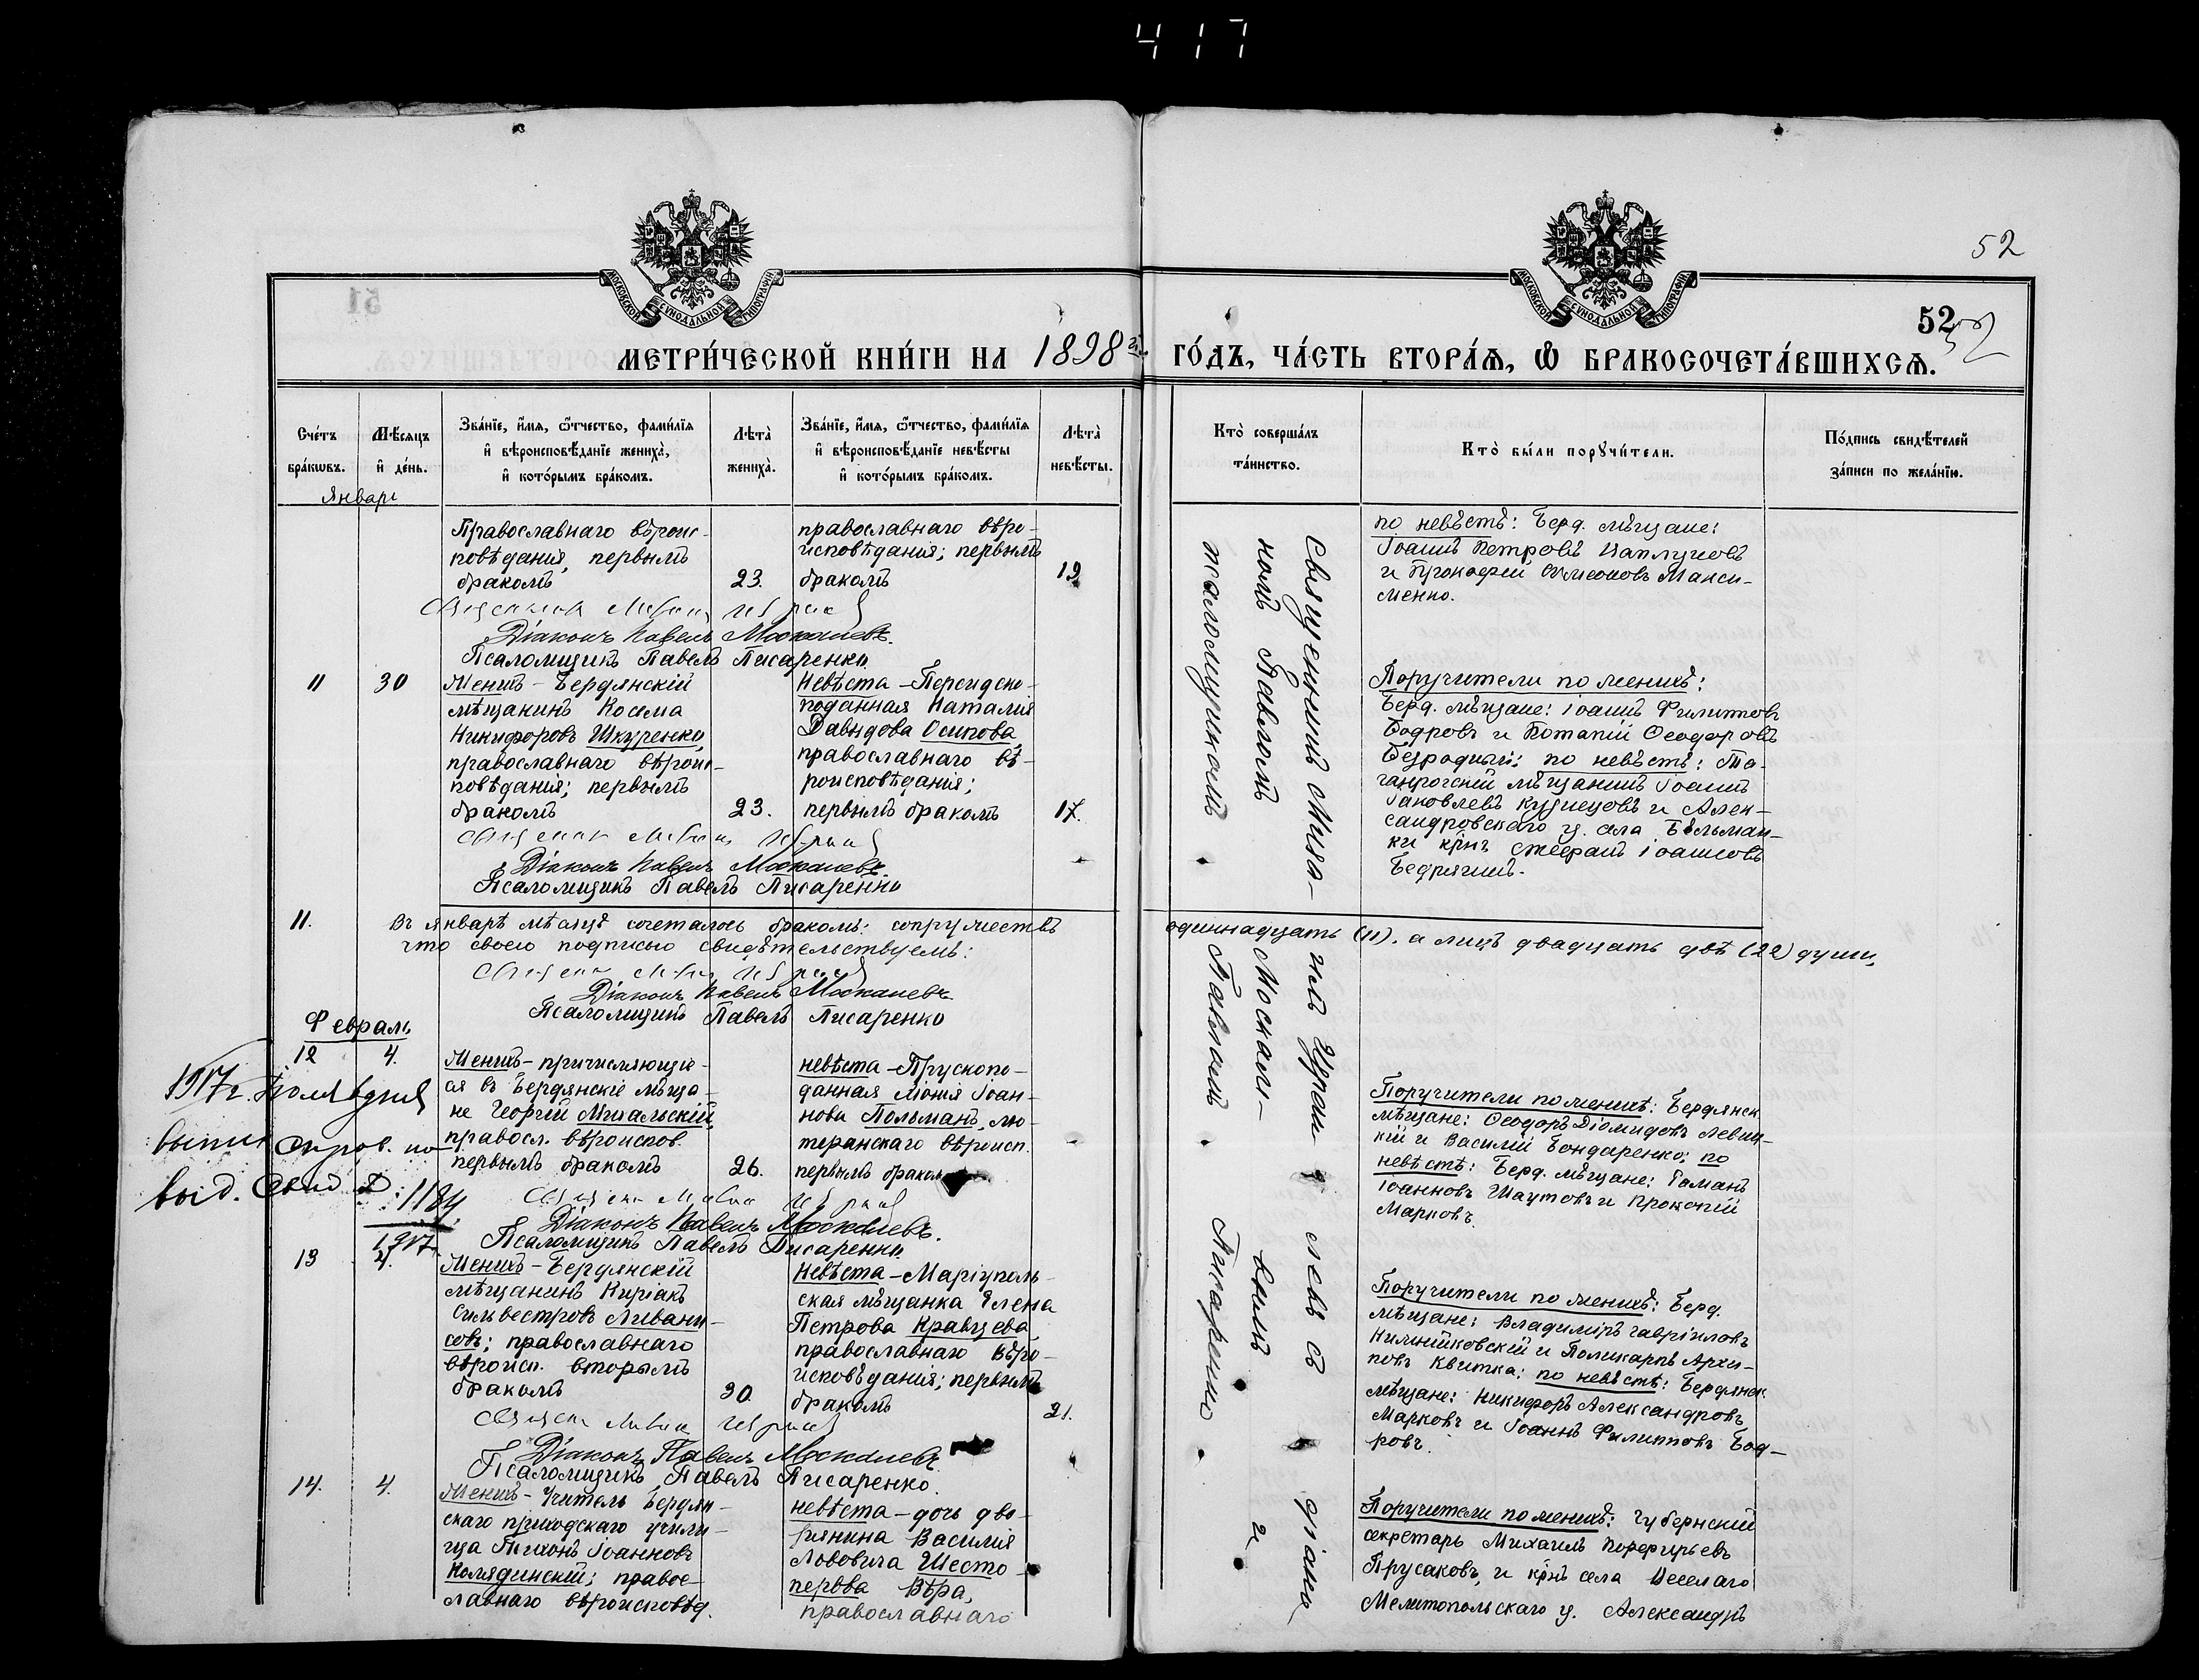 417
52
МОСКОВСКОЙ СѴНОДАЛЬНОЙ ТИПОГРАФІИ
МОСКОВСКОЙ СѴНОДАЛЬНОЙ ТИПОГРАФІИ
52
52
МЕТРИ́ЧЕСКОЙ КНИ́ГИ НА 1898й ГО́ДЪ, ЧА́СТЬ ВТОРА́Я, Ѿ БРАКОСОЧЕТА́ВШИХСЯ.
Сче́тъ бра́кѡвъ.
Мѣ́сяцъ и҆ де́нь.
Зва́нїе, и҆́мя, ѻ҆́тчество, фами́лїя и҆ вѣроисповѣ́данїе жениха̀, и҆ кото́рымъ бра́комъ.
Лѣта̀ жениха̀.
Зва́нїе, и҆́мя, ѻ҆́тчество, фами́лїя и҆ вѣроисповѣ́данїе невѣ́сты и҆ кото́рымъ бра́комъ.
Лѣта̀ невѣ́сты.
Кто̀ соверша́лъ та́инство.
Кто̀ бы́ли порꙋчи́тели.
По́дпись свидѣ́телей за́писи по жела́нїю.
Январь
Православнаго вѣроис-
повѣданія, первымъ
бракомъ
23.
православнаго вѣро-
исповѣданія; первымъ
бракомъ
19
по невѣстѣ: Берд. мѣщане:
Іоаннъ Петровъ
и Прокофій Симеоновъ Макси-
менко.
Діаконъ Павелъ Москалевъ.
Псаломщикъ Павелъ Писаренко.
11
30
Женихъ - Бердянскій
мѣщанинъ Косма
Никифоровъ Шкуренко,
православнаго вѣроис-
повѣданія; первымъ
бракомъ
23.
Невѣста - Персидско-
поданная Наталія
Давыдова Осипова,
православнаго вѣ-
роисповѣданія;
первымъ бракомъ
17.
Поручители по женихѣ:
Берд. мѣщане: Іоаннъ Филиповъ
Бодровъ и Потапій Ѳеодоровъ
Безродный; по невѣстѣ: Та-
ганрогскій мѣщанинъ Іоаннъ
Іаковлевъ Кузнецовъ и Алек-
сандровскаго у. села Бельман-
ки крнъ Стефанъ Іоанновъ
Діаконъ Павелъ Москалевъ.
Псаломщикъ Павелъ Писаренко
11.
Въ январѣ мѣсяцѣ сочеталось бракомъ: супружествъ одиннадцать (11), а лицъ двадцать двѣ (22) души,
что своею подписью свидѣтельствуемъ:
Діаконъ Павелъ Москалевъ.
Псаломщикъ Павелъ Писаренко
Февраль
12
4.
Женихъ - причисляющій-
ся въ Бердянскіе мѣща-
не Георгій Мигальскій,
правосл. вѣроисповѣд.
первымъ бракомъ
26.
невѣста - Прускопо-
данная Іоан-
нова Польманъ, лю-
теранскаго вѣроисп.
первымъ браком
Поручители по женихѣ: Бердянск.
мѣщане: Ѳеодоръ Діомидовъ Левиц-
кій и Василій Бондаренко; по
невѣстѣ: Берд. мѣщане: Романъ
Іоанновъ Шаутовъ и Прокопій
Марковъ.
1917 г.
выд. свид. 1184
1917 г.
Діаконъ Павелъ Москалевъ.
Псаломщикъ Павелъ Писаренко
13
4.
Женихъ - Бердянскій
мѣщанинъ Киріакъ
Сильвестровъ Ливани-
совъ; православнаго
вѣроисп. вторымъ
бракомъ
30.
Невѣста - Маріуполь-
ская мѣщанка Елена
Петрова Кравцева,
православнаго вѣро-
исповѣданія; первымъ
бракомъ
21.
Поручители по женихѣ: Берд.
мѣщане: Владиміръ Гавріиловъ
и Поликарпъ Архи-
повъ Квитка; по невѣстѣ: Бердянск.
мѣщане: Никифоръ Александровъ
Марковъ и Іоаннъ Филиповъ Бод-
ровъ.
Діаконъ Павелъ Москалевъ
Псаломщикъ Павелъ Писаренко.
14.
4.
Женихъ - учитель Бердян-
скаго приходскаго учили-
ща Тихонъ Іоанновъ
Колядинскій; правос-
лавнаго вѣроисповѣд.
невѣста - дочь дво-
рянина Василія
Львовича Шесто-
перова Вѣра,
православнаго
Поручители по женихѣ: Губернскій
секретарь Михаилъ Порфирьевъ
Прусаковъ, и крнъ села Веселаго
Мелитопольскаго у. Александръ
Священникъ Миха- илъ с діако-
номъ Павломъ Москале- вымъ и
псаломщикомъ Павломъ Писаренко.